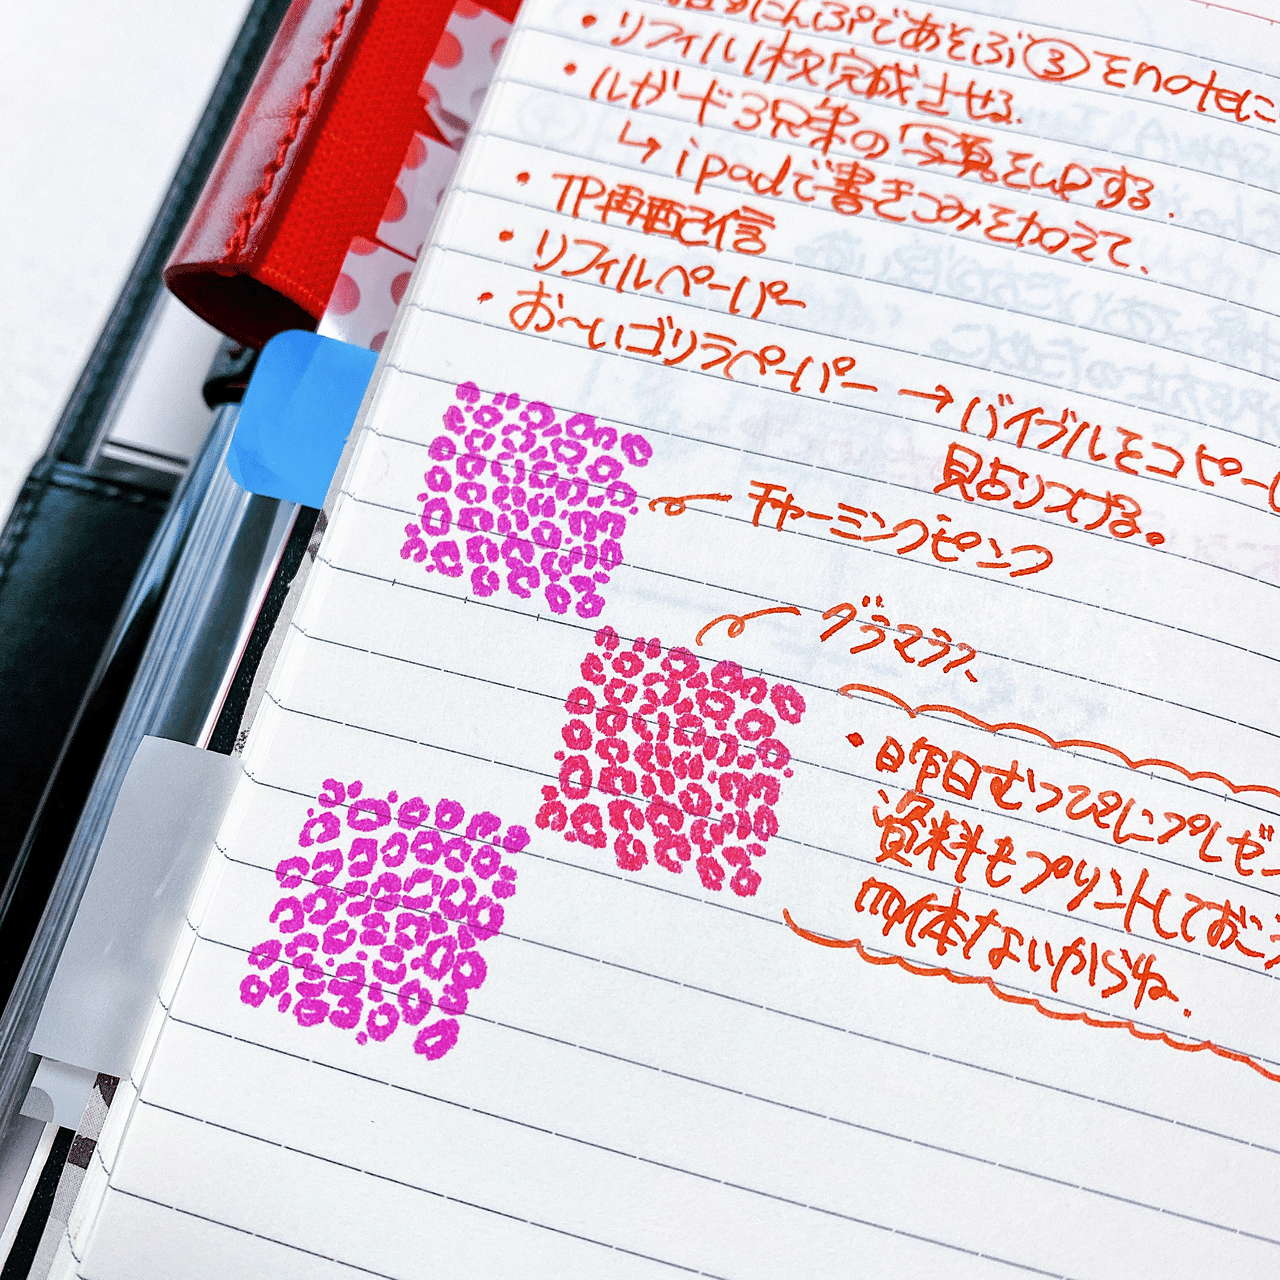 にんぷであそぶ③をnoteに
・リフィル1枚完成させる.
・ルガード3兄弟の写真をupする.
↳ipadで書きこみを加えて、
・TP再配信
・リフィルペーパー
・お〜いゴリラペーパー→バイブルをコピーし
見はりつける。
チャーミングピンク
グラマラス
・昨日むつぴにプレゼン
資料もプリントしておこう
勿体ないからね.